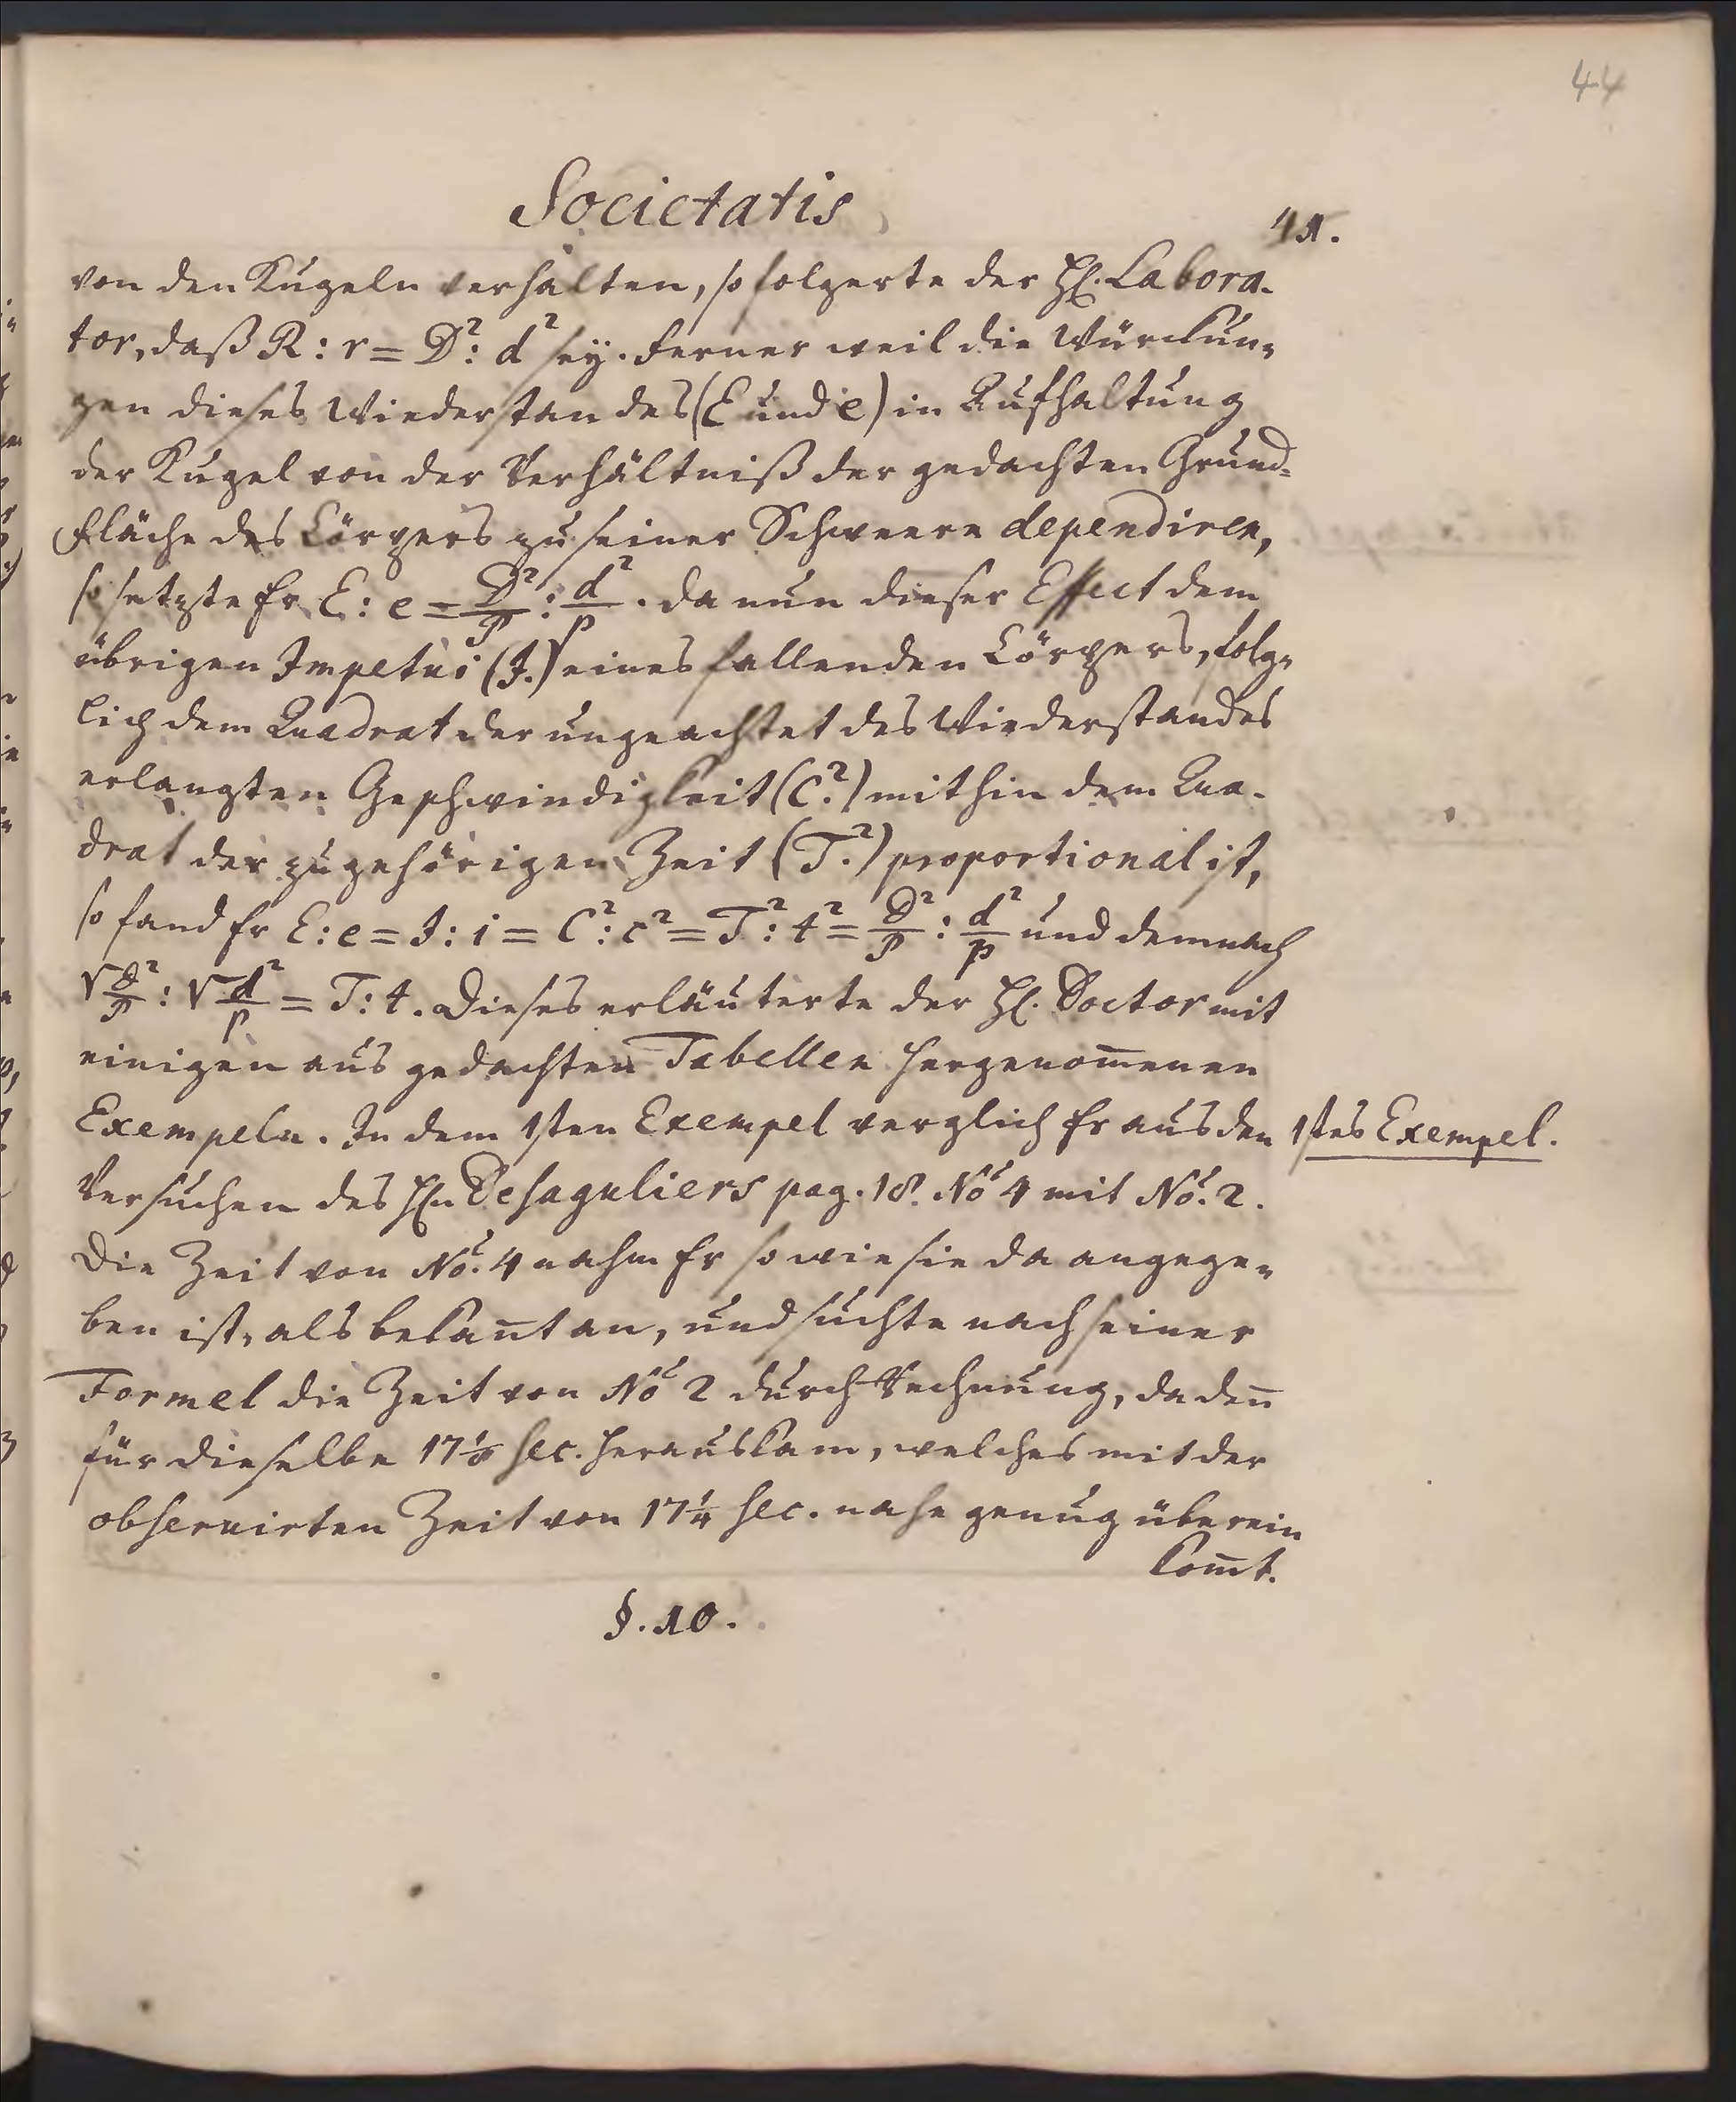 44
Societatis
41.
von den Kugeln verhalten, so folgerte der H. Labora-
tor, daß R : r = D² : d² sey. Ferner weil die Würckun-
gen dieses Wiederstandes (E und e) in Aufhaltung
der Kugel von der Verhältniß der gedachten Grund-
fläche des Cörpers zu seiner Schweere dependiren,
so setzte Er E : e = D²/P : d²/p. da nun dieser Effect dem
übrigen Impetui (I.) eines fallenden Cörpers, folg-
lich dem Quadrat der ungeachtet des Wiederstandes
erlangten Geschwindigkeit (C².) mithin dem Qua-
drat der zugehörigen Zeit (T².) proportional ist,
so fand Er E : e = I : i = C² : c² = T² : t² = D²/P : d²/p und demnach
√D²/P : √d²/p = T : t. Dieses erläuterte der H. Doctor mit
einigen aus gedachten Tabellen hergenom̅enen
Exempeln. In dem 1sten Exempel verglich Er aus den
1stes Exempel.
Versuchen des Hn. Desaguliers pag. 18. No. 4 mit No. 2.
Die Zeit von No. 4 nahm Er so wie sie da angege-
ben ist, als bekan̅t an, und suchte nach seiner
Formel die Zeit von No 2 durch Rechnung, da den̅
für dieselbe 17⅛ sec. herauskam, welches mit der
observirten Zeit von 17¼ sec. nahe genug überein
kom̅t.
§. 10.